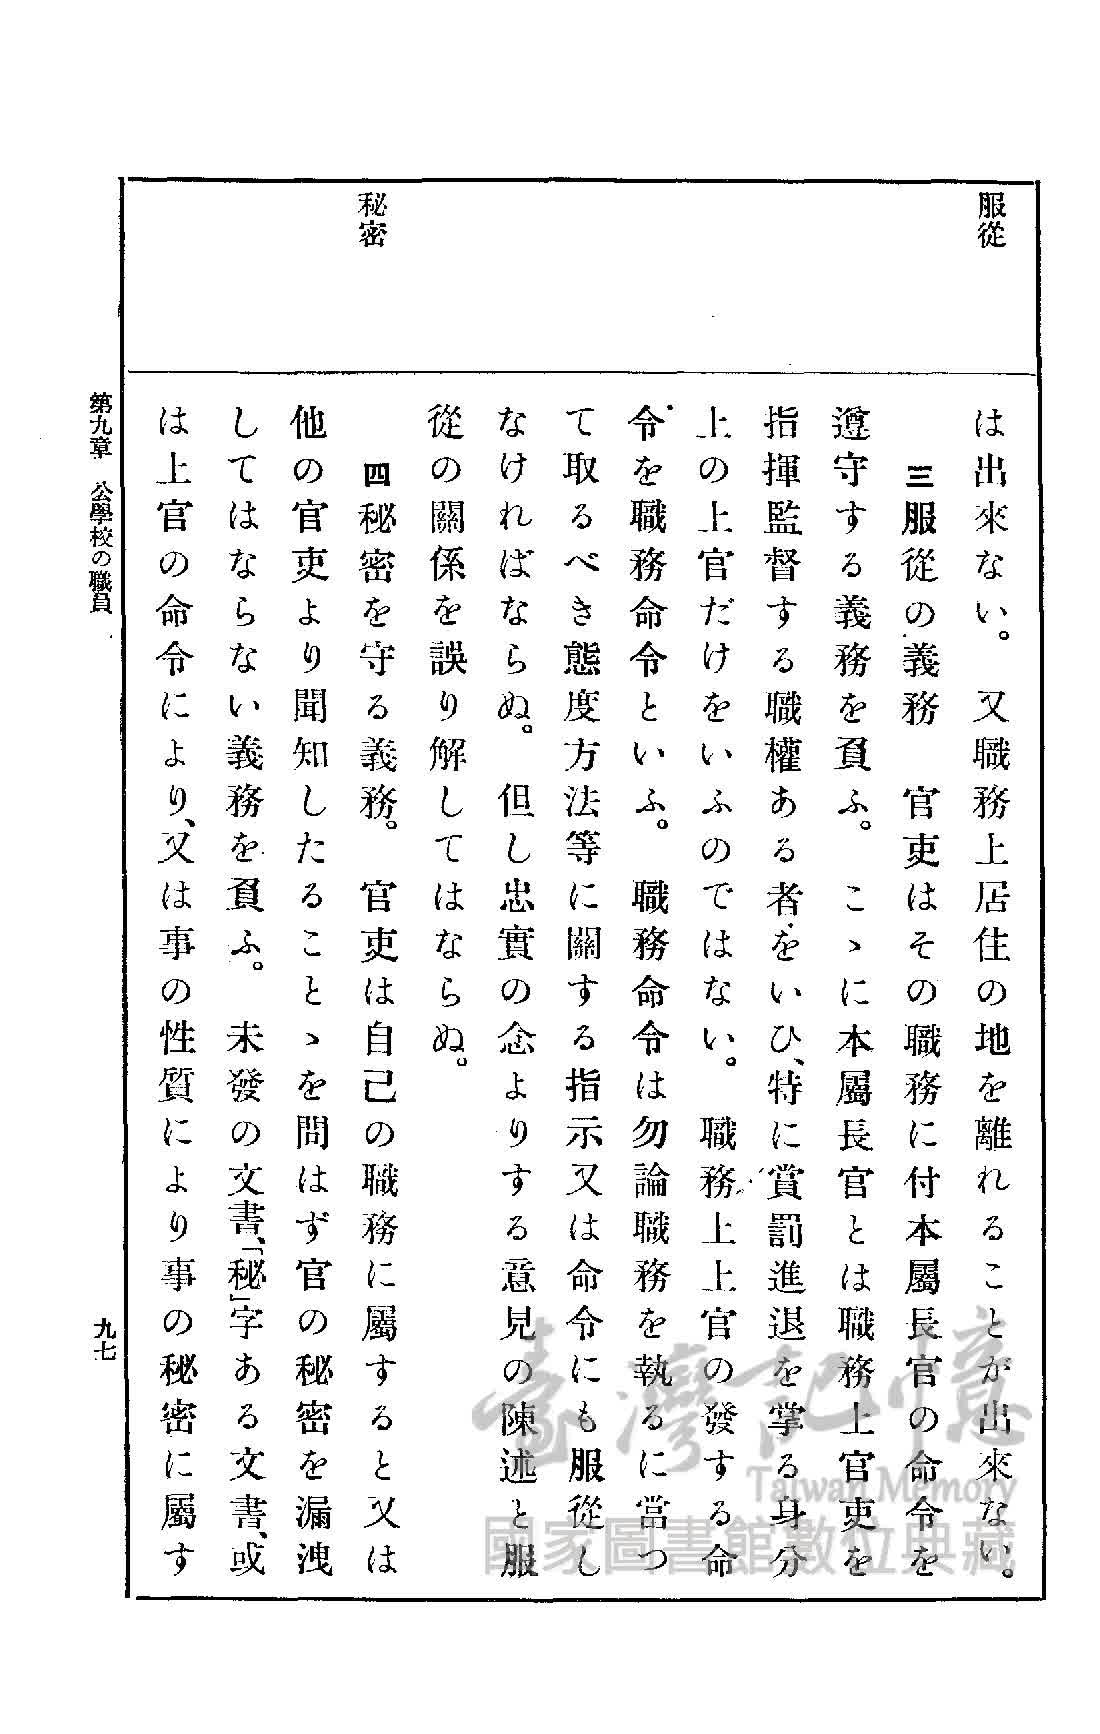 服從
秘密
は出來ない。　又職務上居住の地を離れることが出來ない。
三 服從の義務　官吏はその職務に付本屬長官の命令を
遵守する義務を負ふ。　こゝに本屬長官とは職務上官吏を
指揮監督する職權ある者をいひ、特に賞罰進退を掌る身分
上の上官だけをいふのではない。　職務上上官の發する命
令を職務命令といふ。　職務命令は勿論職務を執るに當つ
て取るべき態度方法等に關する指示又は命令にも服從し
なければならぬ。　但し忠實の念よりする意見の陳述と服
從の關係を誤り解してはならぬ。
四 秘密を守る義務。　官吏は自己の職務に屬すると又は
他の官吏より聞知したることゝを問はず官の秘密を漏洩
してはならない義務を負ふ。　未發の文書、「秘」字ある文書、或
は上官の命令により、又は事の性質により事の秘密に屬す
第九章　公學校の職員
九七
臺灣記憶
Taiwan Memory
國家圖書館數位典藏